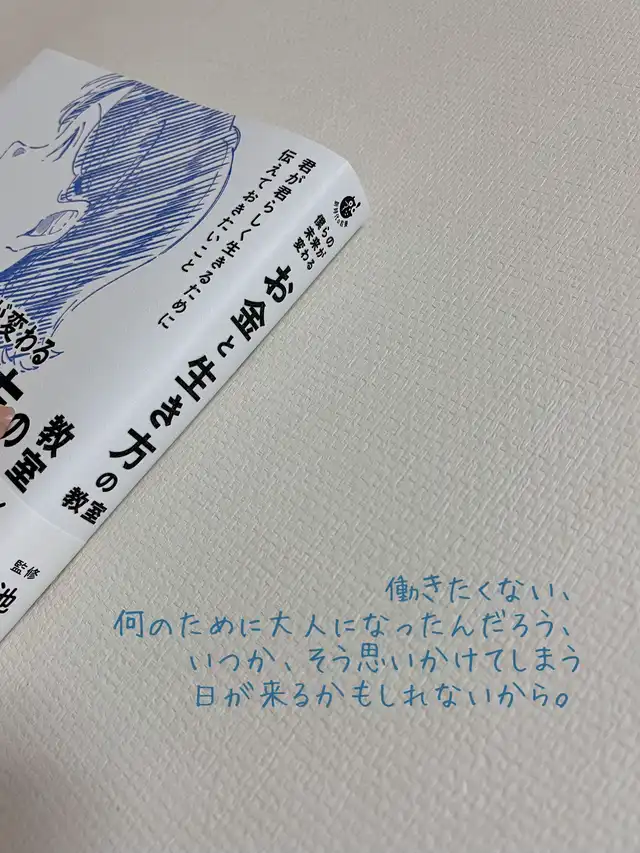 君が君らしく生きるために
伝えておきたいこと
僕らの
未来が
変わる
お金と生き方の教室
が変わる
の
教室
監修
池
働きたくない、
何のために大人になったんだろう、
いつか、そう思いかけてしまう
日が来るかもしれないから。